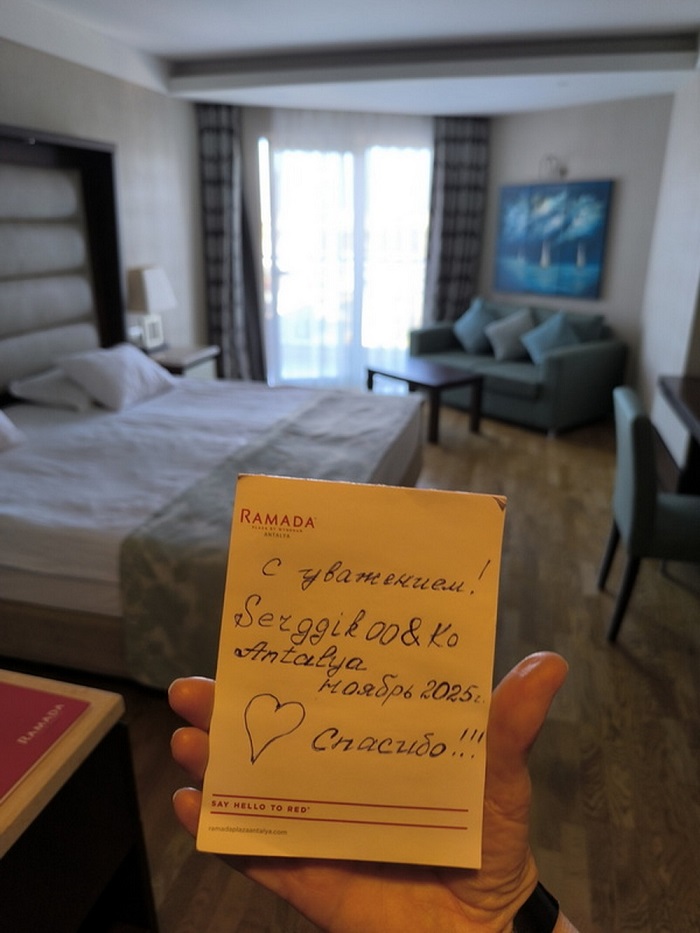 RAMADA
PLAZA BY WYNDHAM
ANTALYA
С уважением!
Serggik00&Ko
Antalya
ноябрь 2025г.
Спасибо!!!
SAY HELLO TO RED
ramadaplazaantalya.com
RAMADA